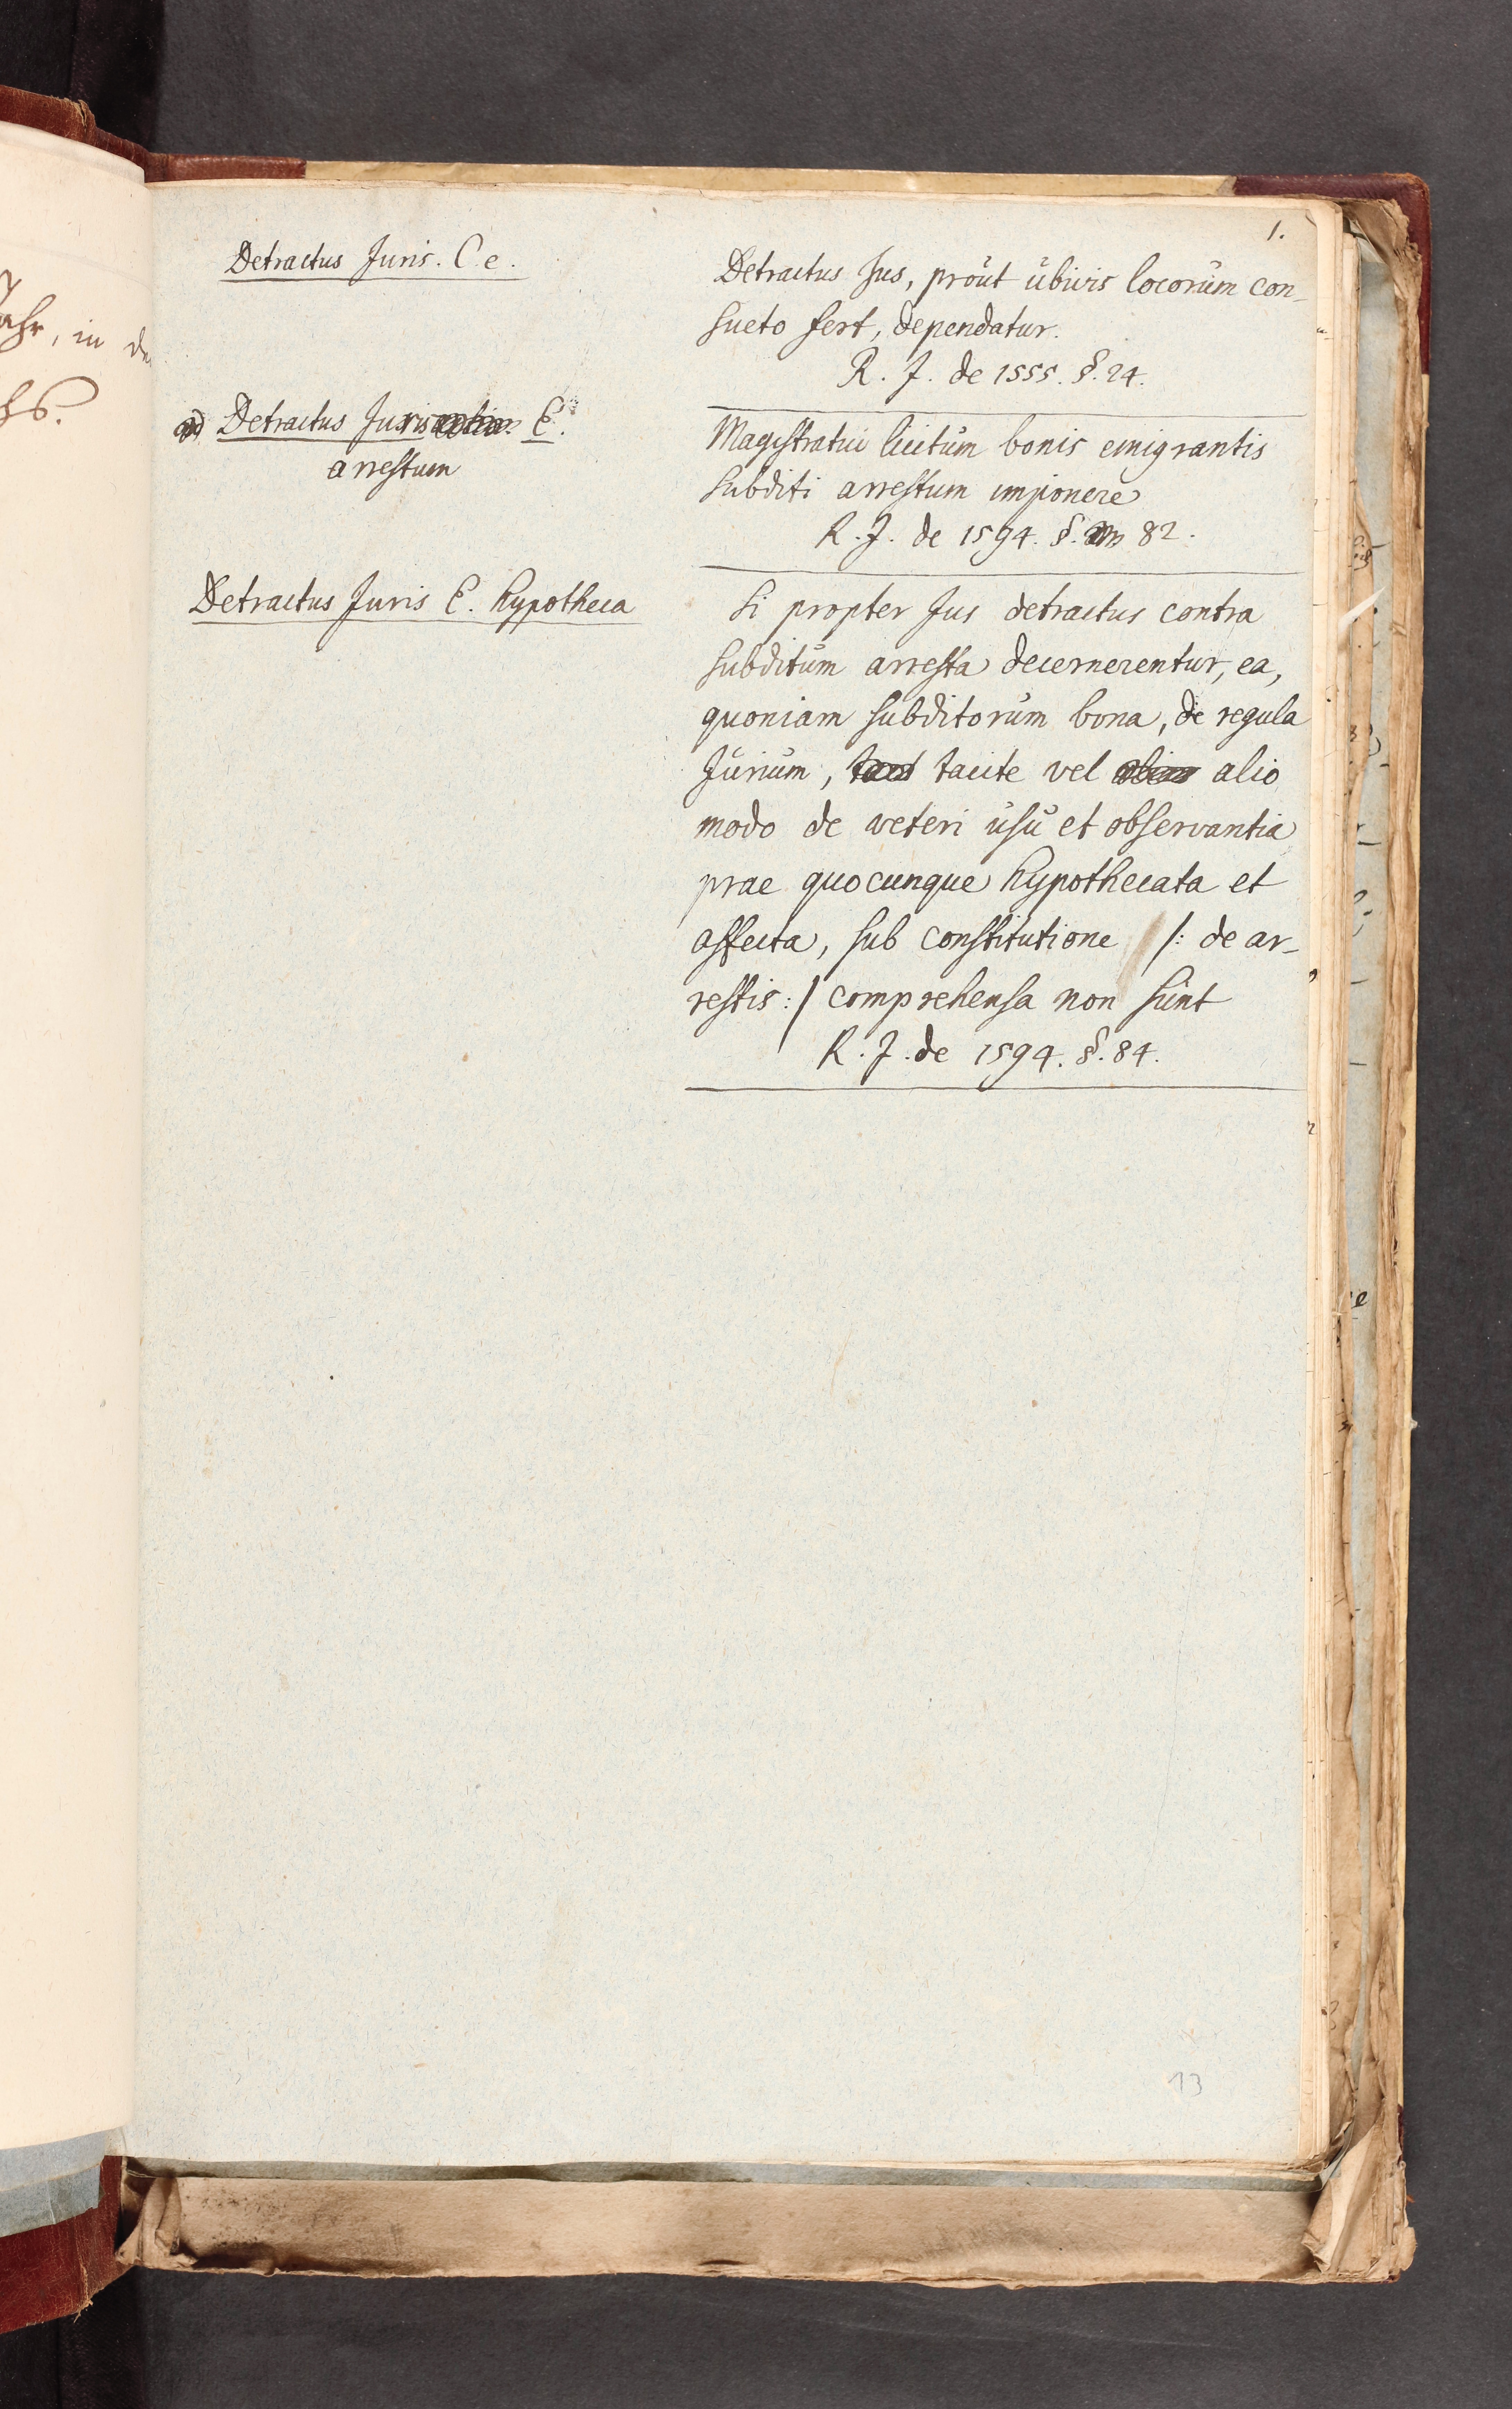 1.
Detractus Juris. C. e.
Detractus Jus, prout ubivis locorum con-
sueto fert, dependatur.
R. J. de 1555. §. 24.
Detractus Juris E.
arrestum
Magistratui licitum bonis emigrantis
subditi arrestum imponere
R. J. de 1594. §. 82.
Detractus Juris E. hypotheca
Si propter Jus detractus contra
subditum arresta decernerentur, ea,
quoniam subditorum bona, de regula
Jurium, tacite vel alio
modo de veteri usu et observantia
prae quocunque hypothecata et
affecta, sub constitutione /: de ar-
restis :/ comprehensa non sunt
R. J. de 1594. §. 84.
13